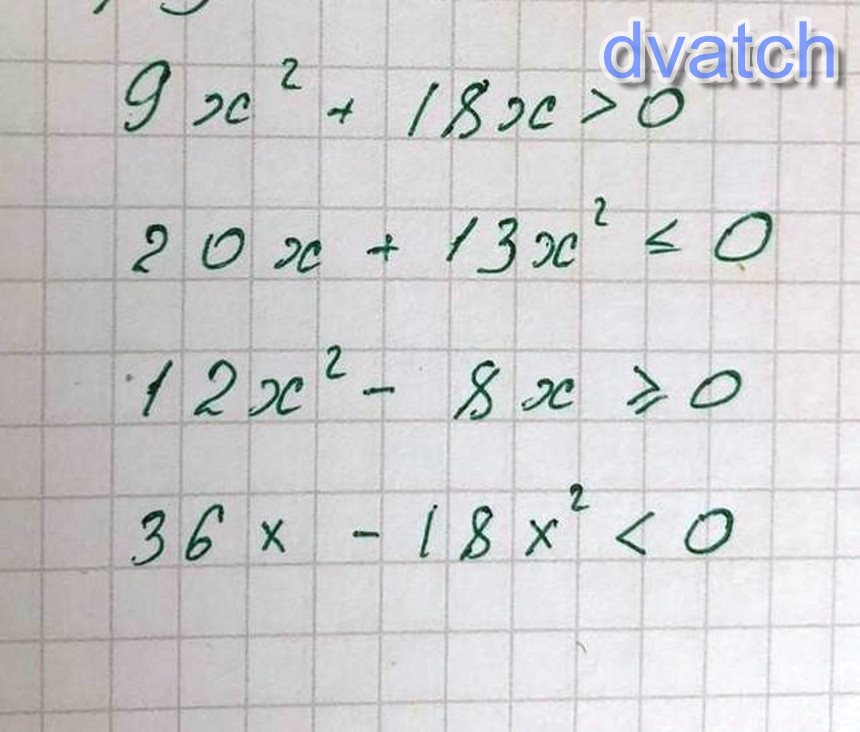 dvatch
9x² + 18x > 0
20x + 13x² ≤ 0
12x² - 8x ≥ 0
36x - 18x² < 0